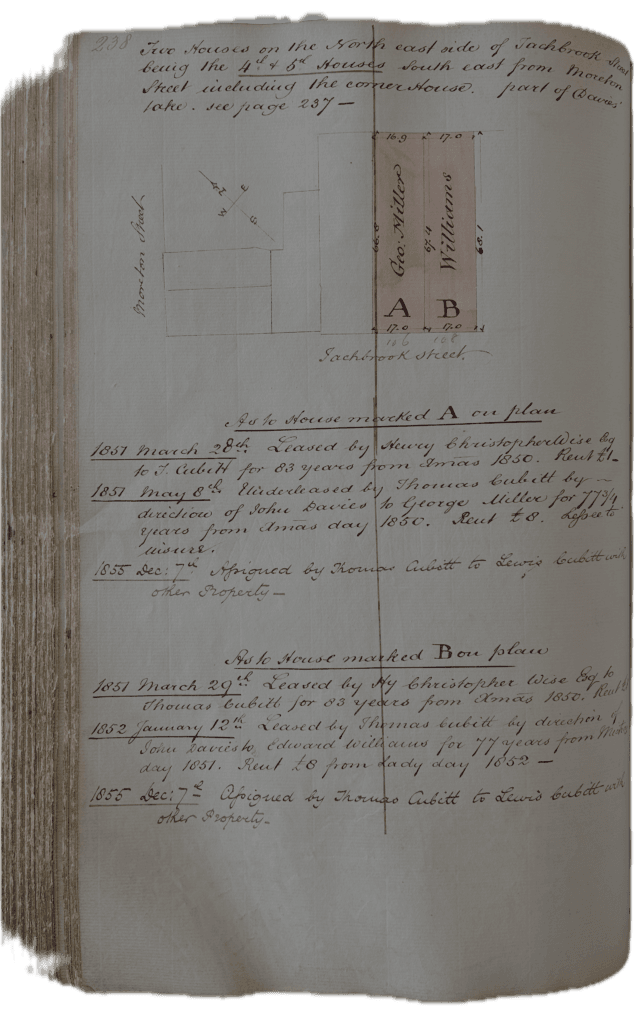 238
Two Houses on the North east side of Tachbrook Street
being the 4th & 5th Houses South east from Moreton
Street including the corner House. part of Davies'
take. see page 237 —
16.9 17.0
N E
W S
Moreton Street
66.8 Geo: Miller 67.4 Williams 68.1
A B
17.0 17.0
106 108
Tachbrook Street.
As to House marked A on plan
1851 March 28th. Leased by Henry Christopher Wise Esq
to T. Cubitt for 83 years from Xmas 1850. Rent £1-
1851 May 8th Underleased by Thomas Cubitt by —
direction of John Davies to George Miller for 77 3/4
years from Xmas day 1850. Rent £8. Lessee to
insure.
1855 Dec: 7th Assigned by Thomas Cubitt to Lewis Cubitt with
other Property —
As to House marked B on plan
1851 March 29th Leased by Hy Christopher Wise Esq to
Thomas Cubitt for 83 years from Xmas 1850. Rent £1
1852 January 12th Leased by Thomas Cubitt by direction of
John Davies to Edward Williams for 77 years from
day 1851. Rent £8 from Lady day 1852 —
1855 Dec: 7th Assigned by Thomas Cubitt to Lewis Cubitt with
other Property —